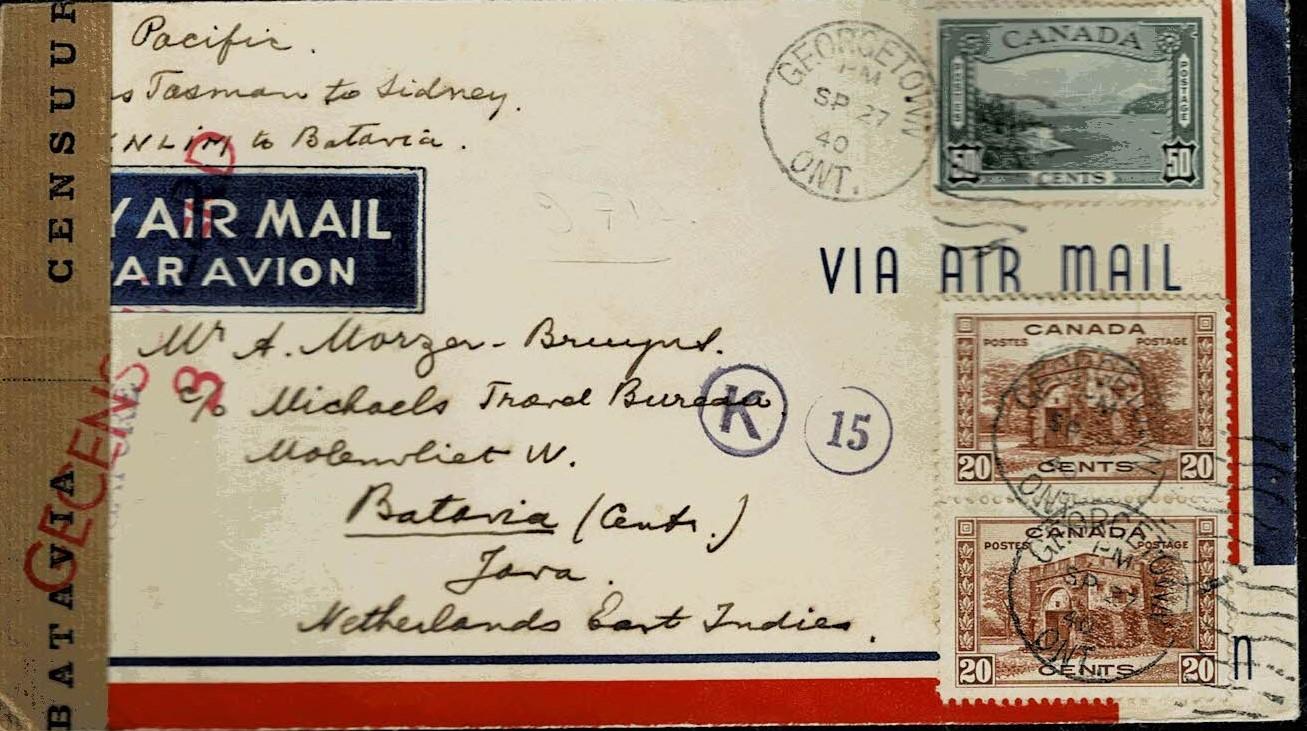 CENSUUR
BATAVIA
Pacific.
s Tasman to Sidney.
KNLIM to Batavia.
Y AIR MAIL
PAR AVION
VIA AIR MAIL
GEORGETOWN
PM
SP 27
40
ONT.
CANADA
POSTAGE
50 CENTS 50
Mr A. Morzer-Bruyns.
c/o Michaels Travel Bureau
Molenvliet W.
Batavia (Centr.)
Java.
Netherlands East Indies.
K
15
GECENS
3
CANADA
POSTES POSTAGE
20 CENTS 20
GEORGETOWN
SP
40
ONT.
CANADA
POSTES POSTAGE
20 CENTS 20
GEORGETOWN
PM
SP 27
40
ONT.
n